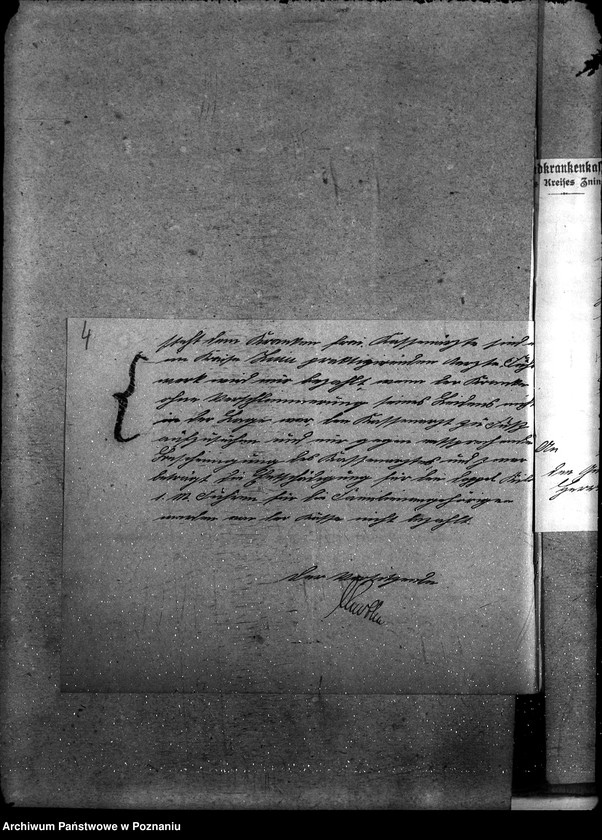 4
steht dem Kranken frei. Kassenärzte sind
im Kreise Znin praktizierenden Aerzte. Fuhr
werk wird nur bezahlt, wenn der Kranke
ohne Verschlimmerung seines Leidens nicht
in der Lage war, den Kassenarzt zu Fuß
aufzusuchen und nur gegen entsprechende
Bescheinigung des Kassenarztes und zwar
beträgt die Entschädigung für den
Fuhren für die Familienangehörigen
werden von der Kasse nicht bezahlt.
Der Vorsitzende
dkrankenkas
Kreises Znin
An
den
Herrn
Archiwum Państwowe w Poznaniu